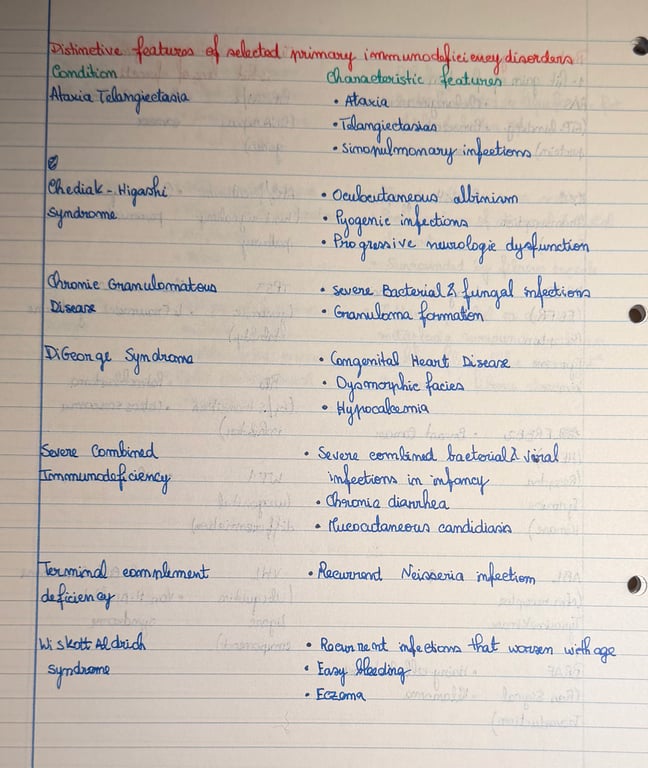 Distinctive features of selected primary immunodeficiency disorders
Condition Characteristic features
Ataxia Telangiectasia • Ataxia
• Telangiectasias
• Sinopulmonary infections
Chediak-Higashi • Oculocutaneous albinism
Syndrome • Pyogenic infections
• Progressive neurologic dysfunction
Chronic Granulomatous • Severe Bacterial & fungal infections
Disease • Granuloma formation
DiGeorge Syndrome • Congenital Heart Disease
• Dysmorphic facies
• Hypocalcemia
Severe Combined • Severe combined bacterial & viral
Immunodeficiency infections in infancy
• Chronic diarrhea
• Mucocutaneous candidiasis
Terminal complement • Recurrend Neisseria infection
deficiency
Wiskott Aldrich • Recurrent infections that worsen with age
Syndrome • Easy bleeding
• Eczema